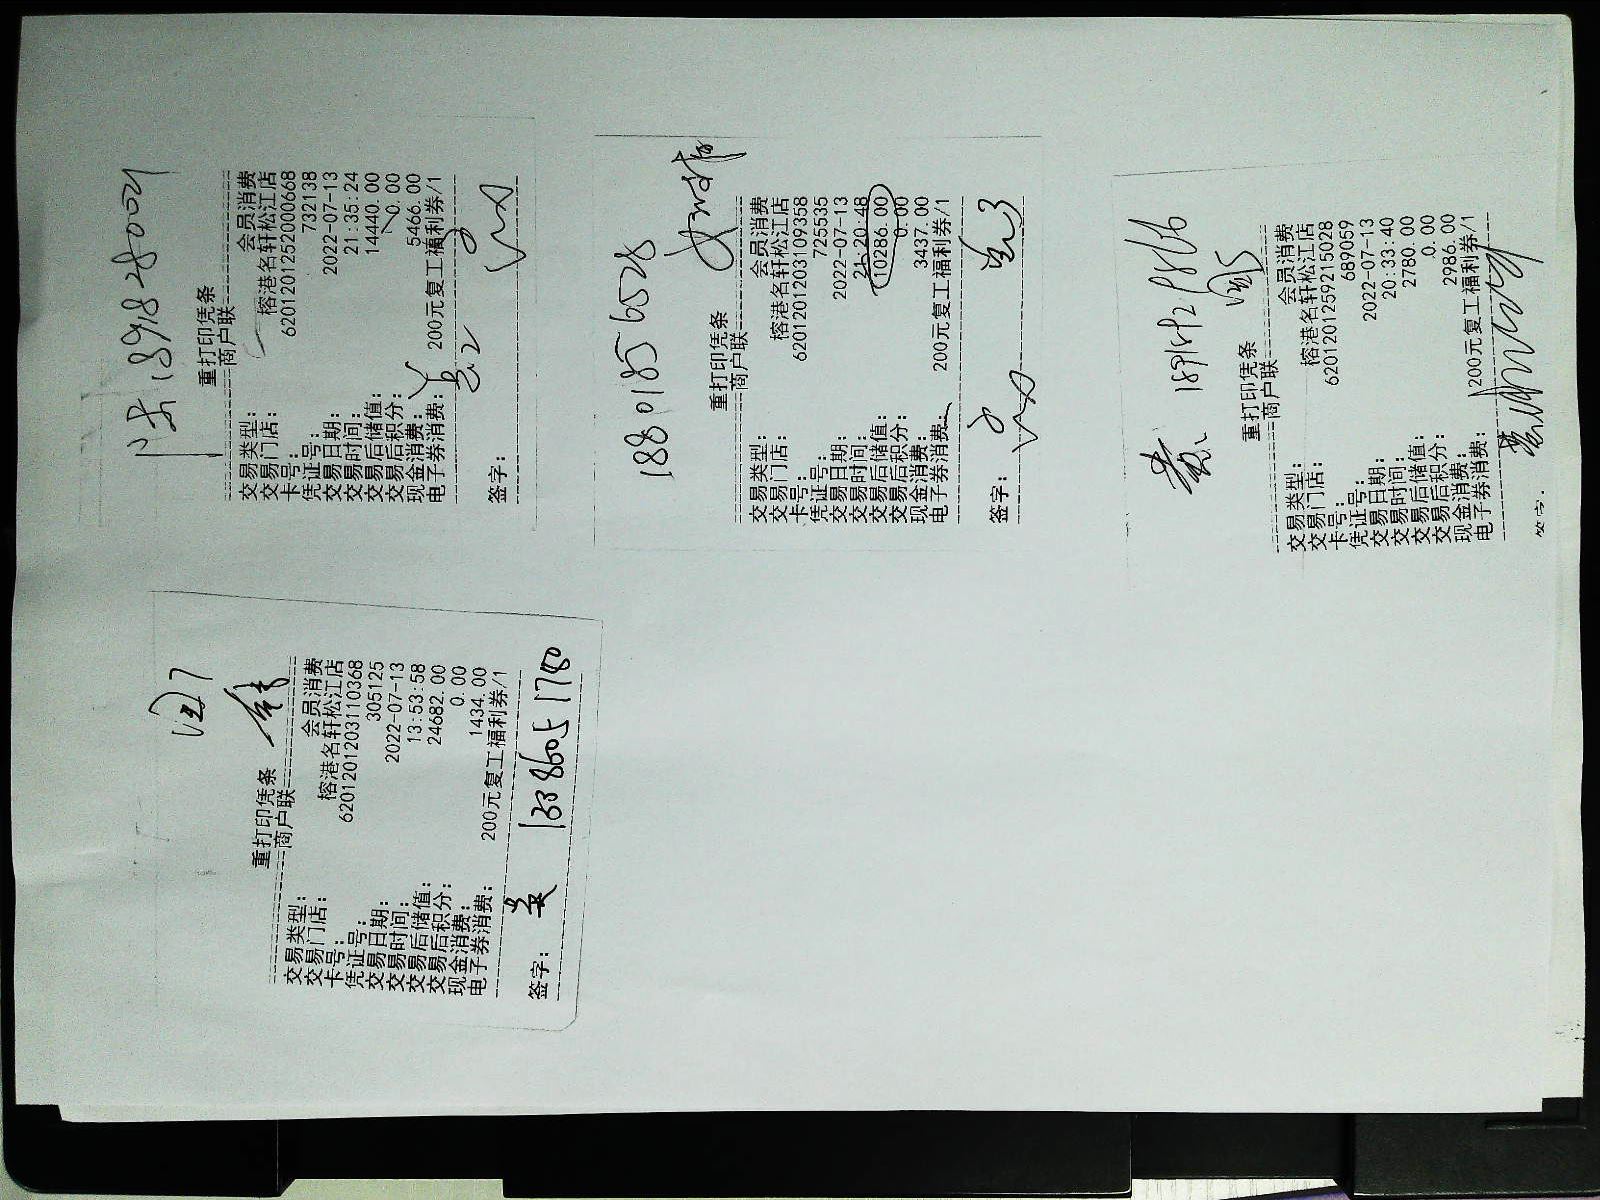 重打印凭条
商户联
交易类型: 会员消费
交易门店: 榕港名轩松江店
卡号: 6201201252000668
凭证号: 732138
交易日期: 2022-07-13
交易时间: 21:35:24
交易后储值: 14440.00
交易后积分: 0.00
现金消费: 5466.00
电子券消费: 200元复工福利券/1
签字:
18801856028
重打印凭条
商户联
交易类型: 会员消费
交易门店: 榕港名轩松江店
卡号: 6201201203109358
凭证号: 725535
交易日期: 2022-07-13
交易时间: 21:20:48
交易后储值: 10286.00
交易后积分: 0.00
现金消费: 3437.00
电子券消费: 200元复工福利券/1
签字:
重打印凭条
商户联
交易类型: 会员消费
交易门店: 榕港名轩松江店
卡号: 6201201259215028
凭证号: 689059
交易日期: 2022-07-13
交易时间: 20:33:40
交易后储值: 2780.00
交易后积分: 0.00
现金消费: 2986.00
电子券消费: 200元复工福利券/1
签字:
重打印凭条
商户联
交易类型: 会员消费
交易门店: 榕港名轩松江店
卡号: 6201201203110368
凭证号: 305125
交易日期: 2022-07-13
交易时间: 13:53:58
交易后储值: 24682.00
交易后积分: 0.00
现金消费: 1434.00
电子券消费: 200元复工福利券/1
签字: 吴 13386051780